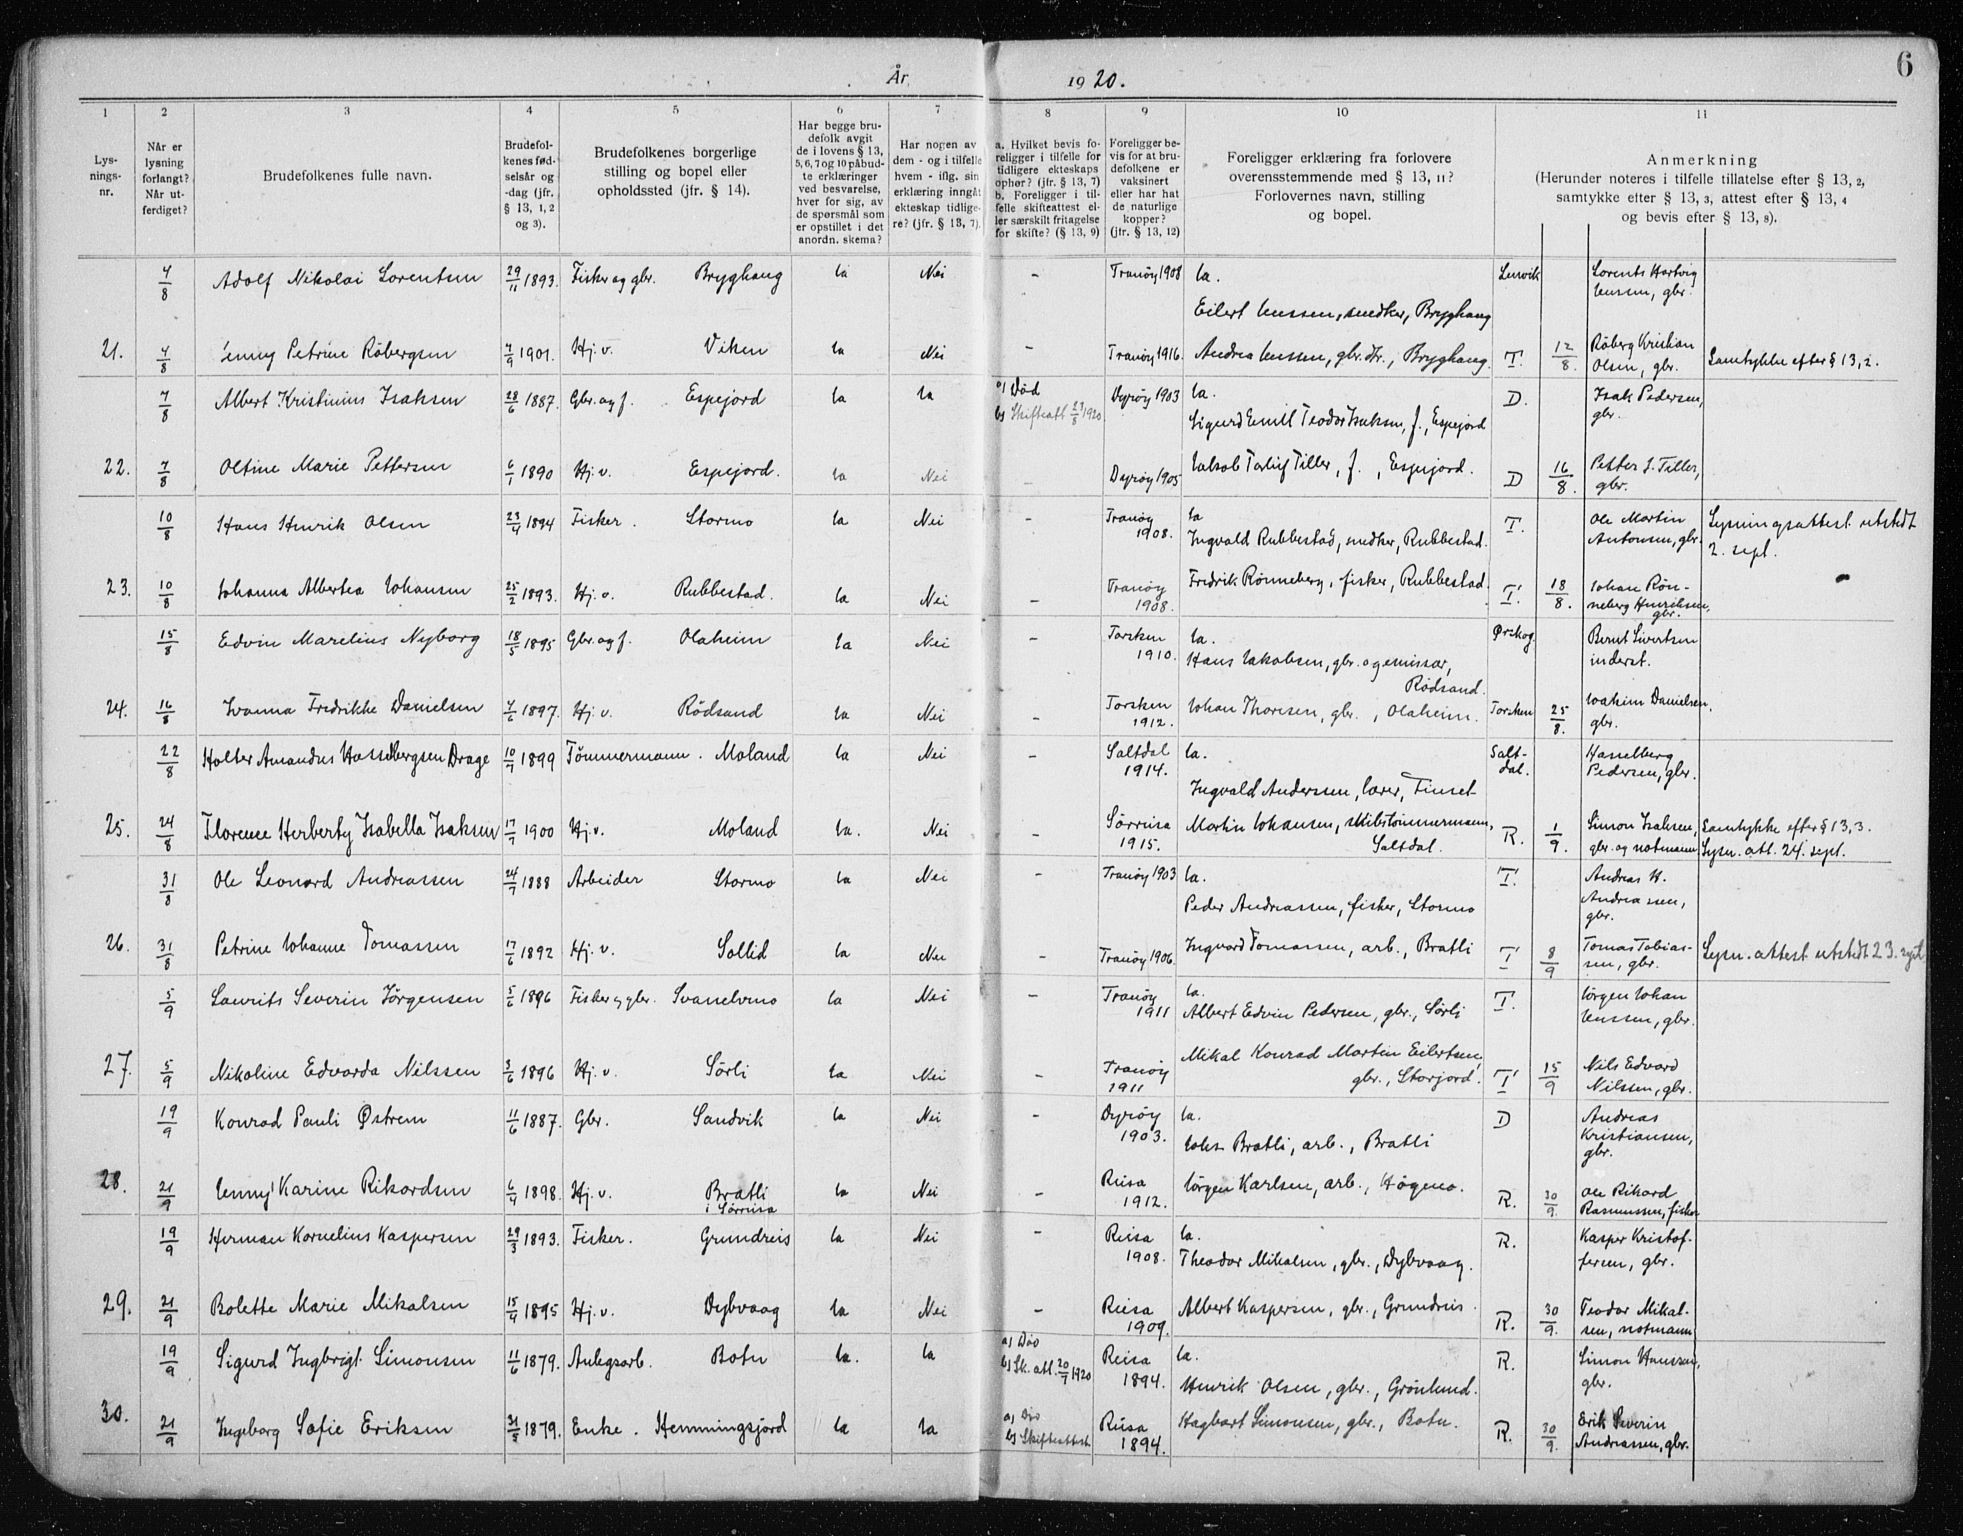 År 1920.
6
1 2 3 4 5 6 7 8 9 10 11
Lysningsnr.
Når er lysning forlangt? Når utferdiget?
Brudefolkenes fulle navn.
Brudefolkenes fødselsår og -dag (jfr. § 13, 1, 2 og 3).
Brudefolkenes borgerlige stilling og bopel eller opholdssted (jfr. § 14).
Har begge brudefolk avgit de i lovens § 13, 5, 6, 7 og 10 påbudte erklæringer ved besvarelse, hver for sig, av de spørsmål som er opstillet i det anordn. skema?
Har nogen av dem - og i tilfelle hvem - iflg. sin erklæring inngåt ekteskap tidligere? (jfr. § 13, 7).
a. Hvilket bevis foreligger i tilfelle for tidligere ekteskaps ophør? (jfr. § 13, 7) b. Foreligger i tilfelle skifteattest eller særskilt fritagelse for skifte? (§ 13, 9)
Foreligger bevis for at brudefolkene er vaksinert eller har hat de naturlige kopper? (jfr. § 13, 12)
Foreligger erklæring fra forlovere overensstemmende med § 13, 11? Forlovernes navn, stilling og bopel.
Anmerkning (Herunder noteres i tilfelle tillatelse efter § 13, 2, samtykke efter § 13, 3, attest efter § 13, 4 og bevis efter § 13, 8).
4/8 Adolf Nikolai Lorentsen 29/11 1893. Fisker og gbr. Bryghaug Ja Nei - Tranöy 1908 Ja. Eilert Jenssen, snedker, Bryghaug Lenvik Lorents Hartvig Jenssen, gbr.
21. 4/8 Jenny Petrine Röbergsen 7/9 1901. Hj. v. Viken Ja Nei - Tranöy 1916. Andrea Jenssen, gbr. Hr., Bryghaug. T. 12/8. Röberg Kristian Olsen, gbr. Samtykke efter § 13, 2.
7/8 Albert Kristinius Isaksen 28/6 1887. Gbr. og f. Espejord Ja Ja a) Död b) Skifteatt. 23/8 1920. Dyröy 1903 Ja. Sigurd Emil Teodor Isaksen, f., Espejord D. Isak Pedersen, gbr.
22. 7/8 Oltine Marie Pettersen 6/1 1890 Hj. v. Espejord. Ja Nei - Dyröy 1905 Jakob Torleif Tiller, f., Espejord. D 16/8. Petter J. Tiller, gbr.
10/8 Hans Henrik Olsen 23/4 1894 Fisker. Stormo Ja Nei - Tranöy 1908. Ja Ingvald Rubbestad, snedker, Rubbestad. T. Ole Martin Antonsen, gbr. Lysningsattest utstedt 2. sept.
23. 10/8 Johanna Albertea Johansen 25/2 1893. Hj. v. Rubbestad. Ja Nei - Tranöy 1908. Fredrik Rønneberg, fisker, Rubbestad. T. 18/8. Johan Rønneberg Henriksen, gbr.
15/8 Edvin Marelius Nyborg 18/5 1895 Gbr. og f. Olaheim Ja Nei - Torsken 1910. Ja. Hans Jakobsen, gbr. og emissær, Rödsand. Ørskog Bernt Sivertsen inderst.
24. 16/8 Ivanna Fredrikke Danielsen 4/6 1897. Hj. v. Rödsand Ja Nei - Torsken 1912. Johan Thoresen, gbr., Olaheim. Torsken 25/8. Joakim Danielsen, gbr.
22/8 Holter Amandus Hasselbergsen Drage 10/7 1899 Tömmermann. Moland Ja Nei - Saltdal 1914. Ja. Ingvald Anderssen, lærer, Finset Saltdal. Hasselberg Pedersen, gbr.
25. 24/8 Florence Herberty Isabella Isaksen 17/7 1900 Hj. v. Moland Ja. Nei - Sörreisa 1915. Martin Johansen, skibstömmermann, Saltdal. R. 1/9. Simon Isaksen, gbr. og notmann Samtykke efter § 13, 3. Lysn. att. 24. sept.
31/8 Ole Leonard Andreassen 24/7 1888 Arbeider Stormo Ja Nei - Tranöy 1903 Ja. Peder Andreassen, fisker, Stormo T. Andreas H. Andreassen, gbr.
26. 31/8 Petrine Johanne Tomassen 17/6 1892 Hj. v. Sollid Ja Nei - Tranöy 1906. Ingvard Tomassen, arb., Bratli T 8/9 Tomas Tobiassen, gbr. Lysn. attest utstedt 23. sept
5/9 Laurits Severin Jörgensen 5/6 1896 Fisker og gbr. Svanelvmo Ja Nei - Tranöy 1911 Ja. Albert Edvin Pedersen, gbr., Sörli T. Jörgen Johan Jenssen, gbr.
27. 5/9 Nikoline Edvarda Nilssen 3/6 1896 Hj. v. Sörli Ja Nei - Tranöy 1911 Mikal Konrad Martin Eilertsen, gbr., Storjord. T 15/9 Nils Edvard Nilssen, gbr.
19/9 Konrad Pauli Østrem 11/6 1887. Gbr. Sandvik Ja Nei - Dyröy 1903. Ja. Johs. Bratli, arb., Bratli D Andreas Kristiansen, gbr.
28. 21/9 Jenny Karine Rikardsen 6/4 1898. Hj. v. Bratli i Sörreisa Ja Nei - Reisa 1912. Jörgen Karlsen, arb., Högmo. R. 30/9. Ole Rikard Rasmussen, fisker
19/9 Herman Kornelius Kaspersen 29/3 1893. Fisker. Grundreis Ja Nei - Reisa 1908. Ja. Theodor Mikalsen, gbr., Dybvaag. R. Kasper Kristoffersen, gbr.
29. 21/9 Bolette Marie Mikalsen 15/4 1895 Hj. v. Dybvaag Ja Nei - Reisa 1909. Albert Kaspersen, gbr., Grundreis. R. 30/9. Teodor Mikalsen, notmann
19/9 Sigurd Ingbrigt Simonsen 11/6 1879. Anlegsarb. Botn Ja. Ja a) Död b) Sk. att. 20/7 1920 Reisa 1894. Ja. Henrik Olsen, gbr., Grönlund. R. Simon Hanssen, gbr.
30. 21/9 Ingeborg Sofie Eriksen 31/5 1879. Enke. Hemmingsjord Ja Ja a) Död b) Skifteattest Reisa 1894. Hagbart Simonsen, gbr., Botn. R. 30/9. Erik Severin Andreassen, gbr.